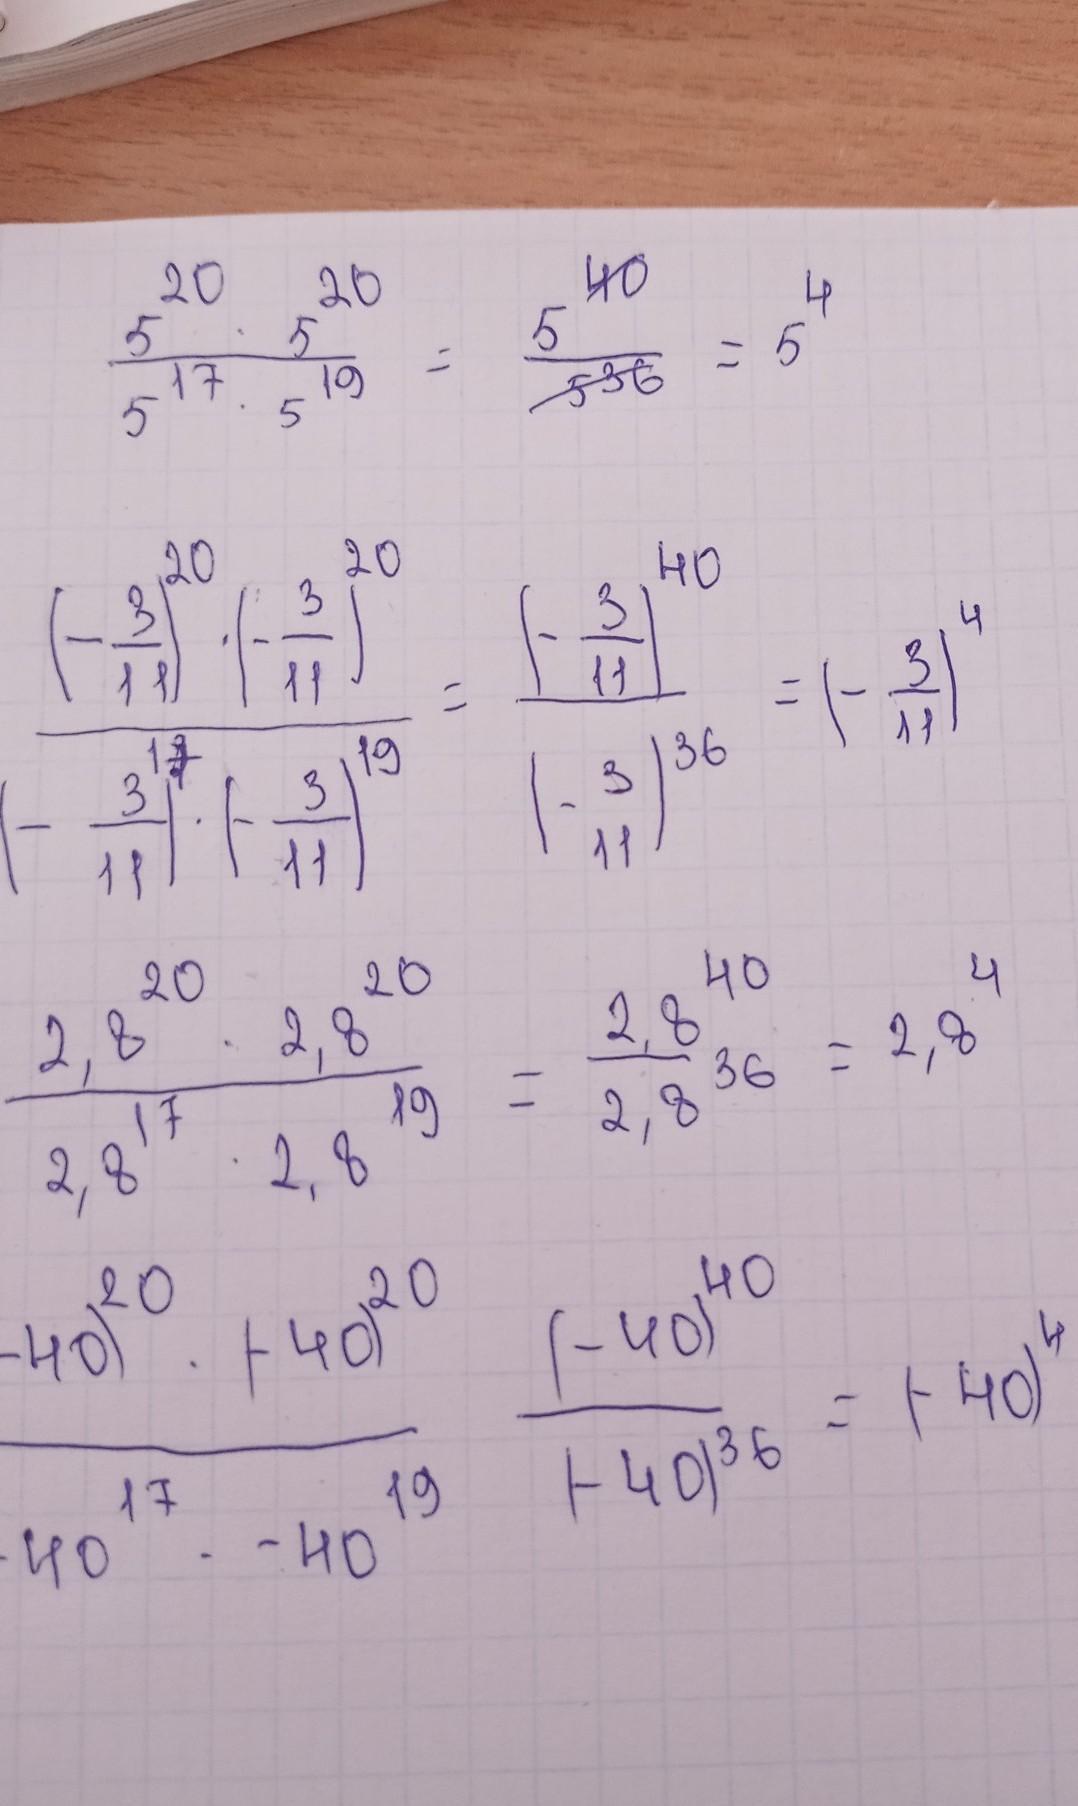 5^20 · 5^20 / 5^17 · 5^19 = 5^40 / 5^36 = 5^4
(-3/11)^20 · (-3/11)^20 / (-3/11)^17 · (-3/11)^19 = (-3/11)^40 / (-3/11)^36 = (-3/11)^4
2,8^20 · 2,8^20 / 2,8^17 · 2,8^19 = 2,8^40 / 2,8^36 = 2,8^4
-40)^20 · (-40)^20 / -40^17 · -40^19 (-40)^40 / (-40)^36 = (-40)^4